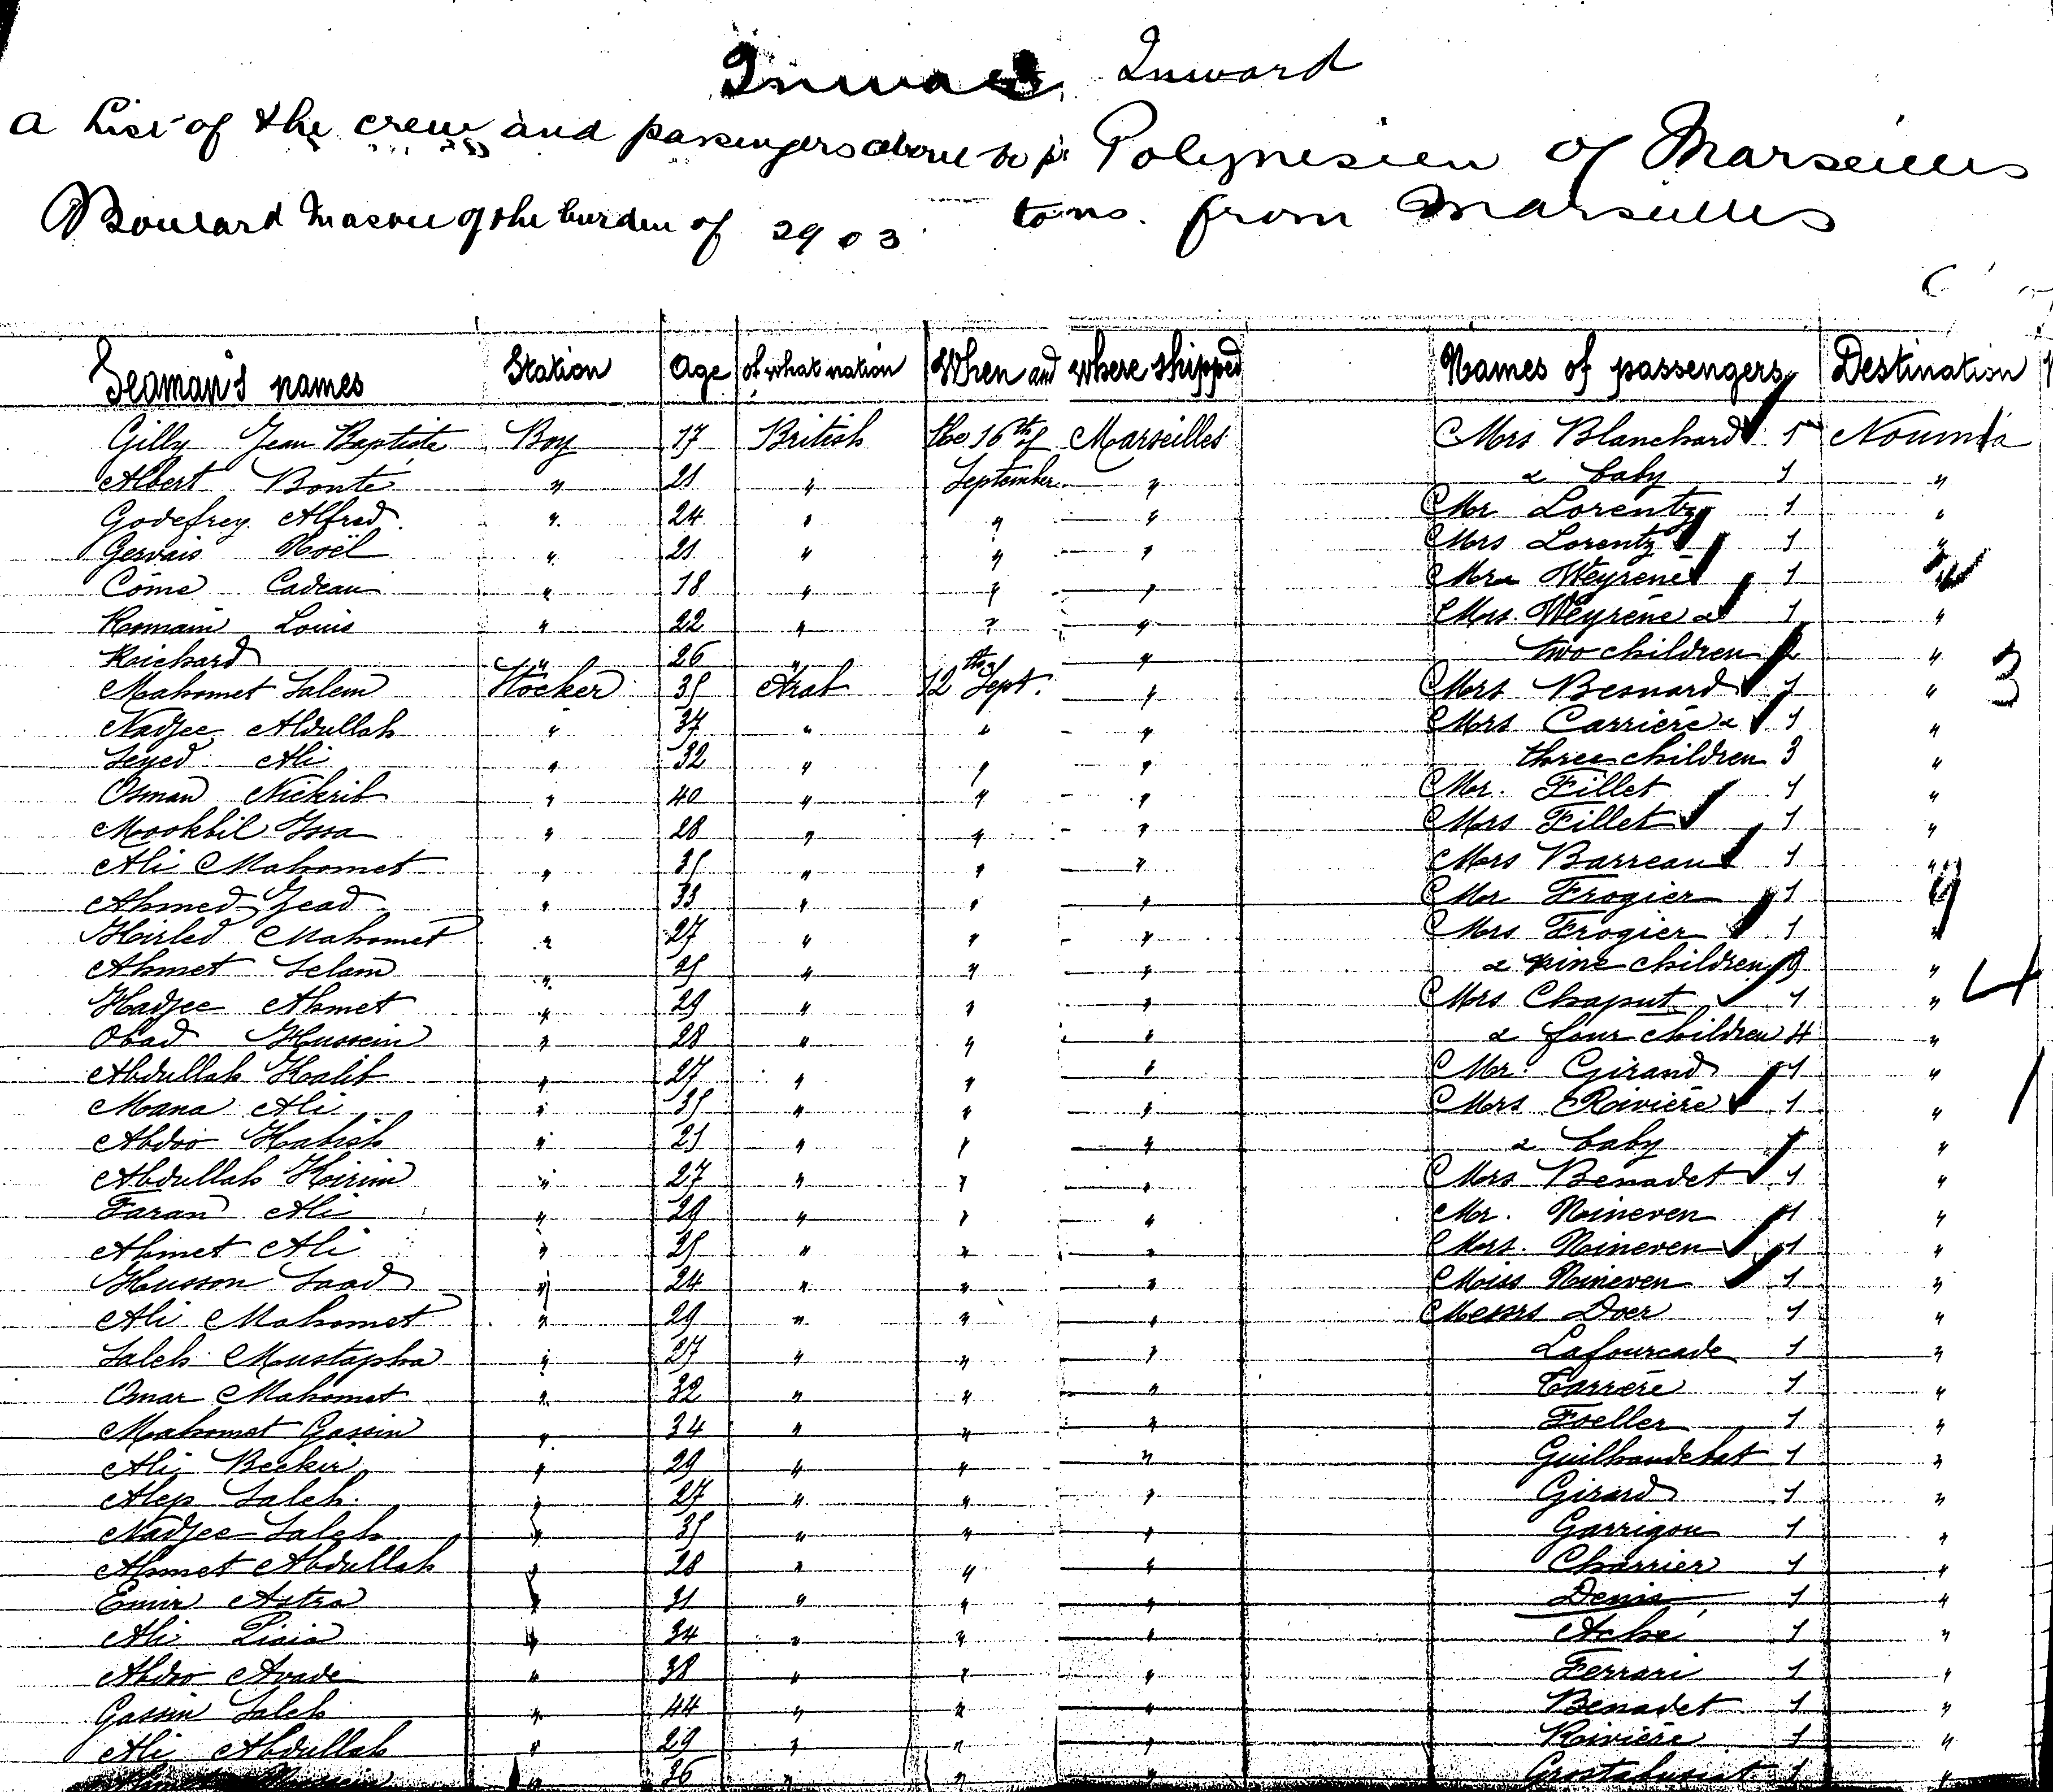 Inward Inward
a List of the crew and passengers above so pr Polynesien of Marseilles
Boulard Master of the burden of 2903 tons. from Marseilles
Seaman's names Station Age of what nation When and where shipped Names of passengers Destination
Gilly Jean Baptiste Boy 17 British the 16th of Marseilles Mrs Blanchard 1 Nouméa
Albert Bonté " 21 " September " & baby 1 "
Godefrey Alfred " 24 " " " Mr Lorentz 1 "
Gervais Noël " 21 " " " Mrs Lorentz 1 "
Côme Cadeau " 18 " " " Mr Weyrène 1 "
Romain Louis " 22 " " " Mrs. Weyrène & 1 "
Raichard " 26 " " two children 2 " 3
Mahomet Salem Stocker 35 Arab 12th of Sept. " Mrs Besnard 1 "
Nadjee Abdullah " 37 " " " Mrs Carrière & 1 "
Seyed Ali " 32 " " " three children 3 "
Osman Nickrib " 40 " " " Mr. Fillet 1 "
Mookbil Issa " 28 " " " Mrs Fillet 1 "
Ali Mahomet " 35 " " " Mrs Barreau 1 "
Ahmed Gead " 33 " " " Mr Frogier 1 " 9
Hirled Mahomet " 27 " " " Mrs Frogier 1 "
Ahmet Selam " 25 " " " & nine children 9 " 4
Hadjee Ahmet " 29 " " " Mrs Chaput 1 "
Obad Hussein " 28 " " " & four children 4 "
Abdullah Kalib " 27 " " " Mr. Girand 1 " 1
Mana Ali " 35 " " " Mrs Rivière 1 "
Abdoo Habish " 21 " " " & baby 1 "
Abdullah Hirim " 27 " " " Mrs Benadet 1 "
Faran Ali " 29 " " " Mr. Nineven 1 "
Ahmet Ali " 25 " " " Mrs. Nineven 1 "
Husson Saad " 24 " " " Miss Nineven 1 "
Ali Mahomet " 29 " " " Messrs Doer 1 "
Saleh Moustapha " 27 " " " Lafourcade 1 "
Omar Mahomet " 32 " " " Carrère 1 "
Mahomet Gassin " 34 " " " Foeller 1 "
Ali Beckir " 29 " " " Guilhaudebat 1 "
Alep Saleh " 27 " " " Girard 1 "
Nadjee Saleh " 35 " " " Garrigou 1 "
Ahmet Abdullah " 28 " " " Charrier 1 "
Emir Astra " 31 " " " Denis 1 "
Ali " 34 " " " Aché 1 "
Abdoo Avade " 38 " " " Ferrari 1 "
Gassin Saleh " 44 " " " Benadet 1 "
Ali Abdullah " 29 " " " Rivière 1 "
" 36 " " " 1 "